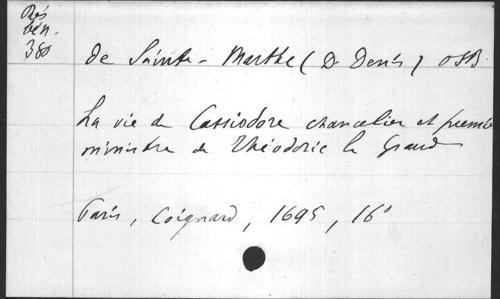 Rés
bén.
380
de Sainte-Marthe (D. Denis) OSB.
La vie de Cassiodore chancelier et premier
ministre de Théodoric le Grand
Paris, Coignard, 1695, 16°